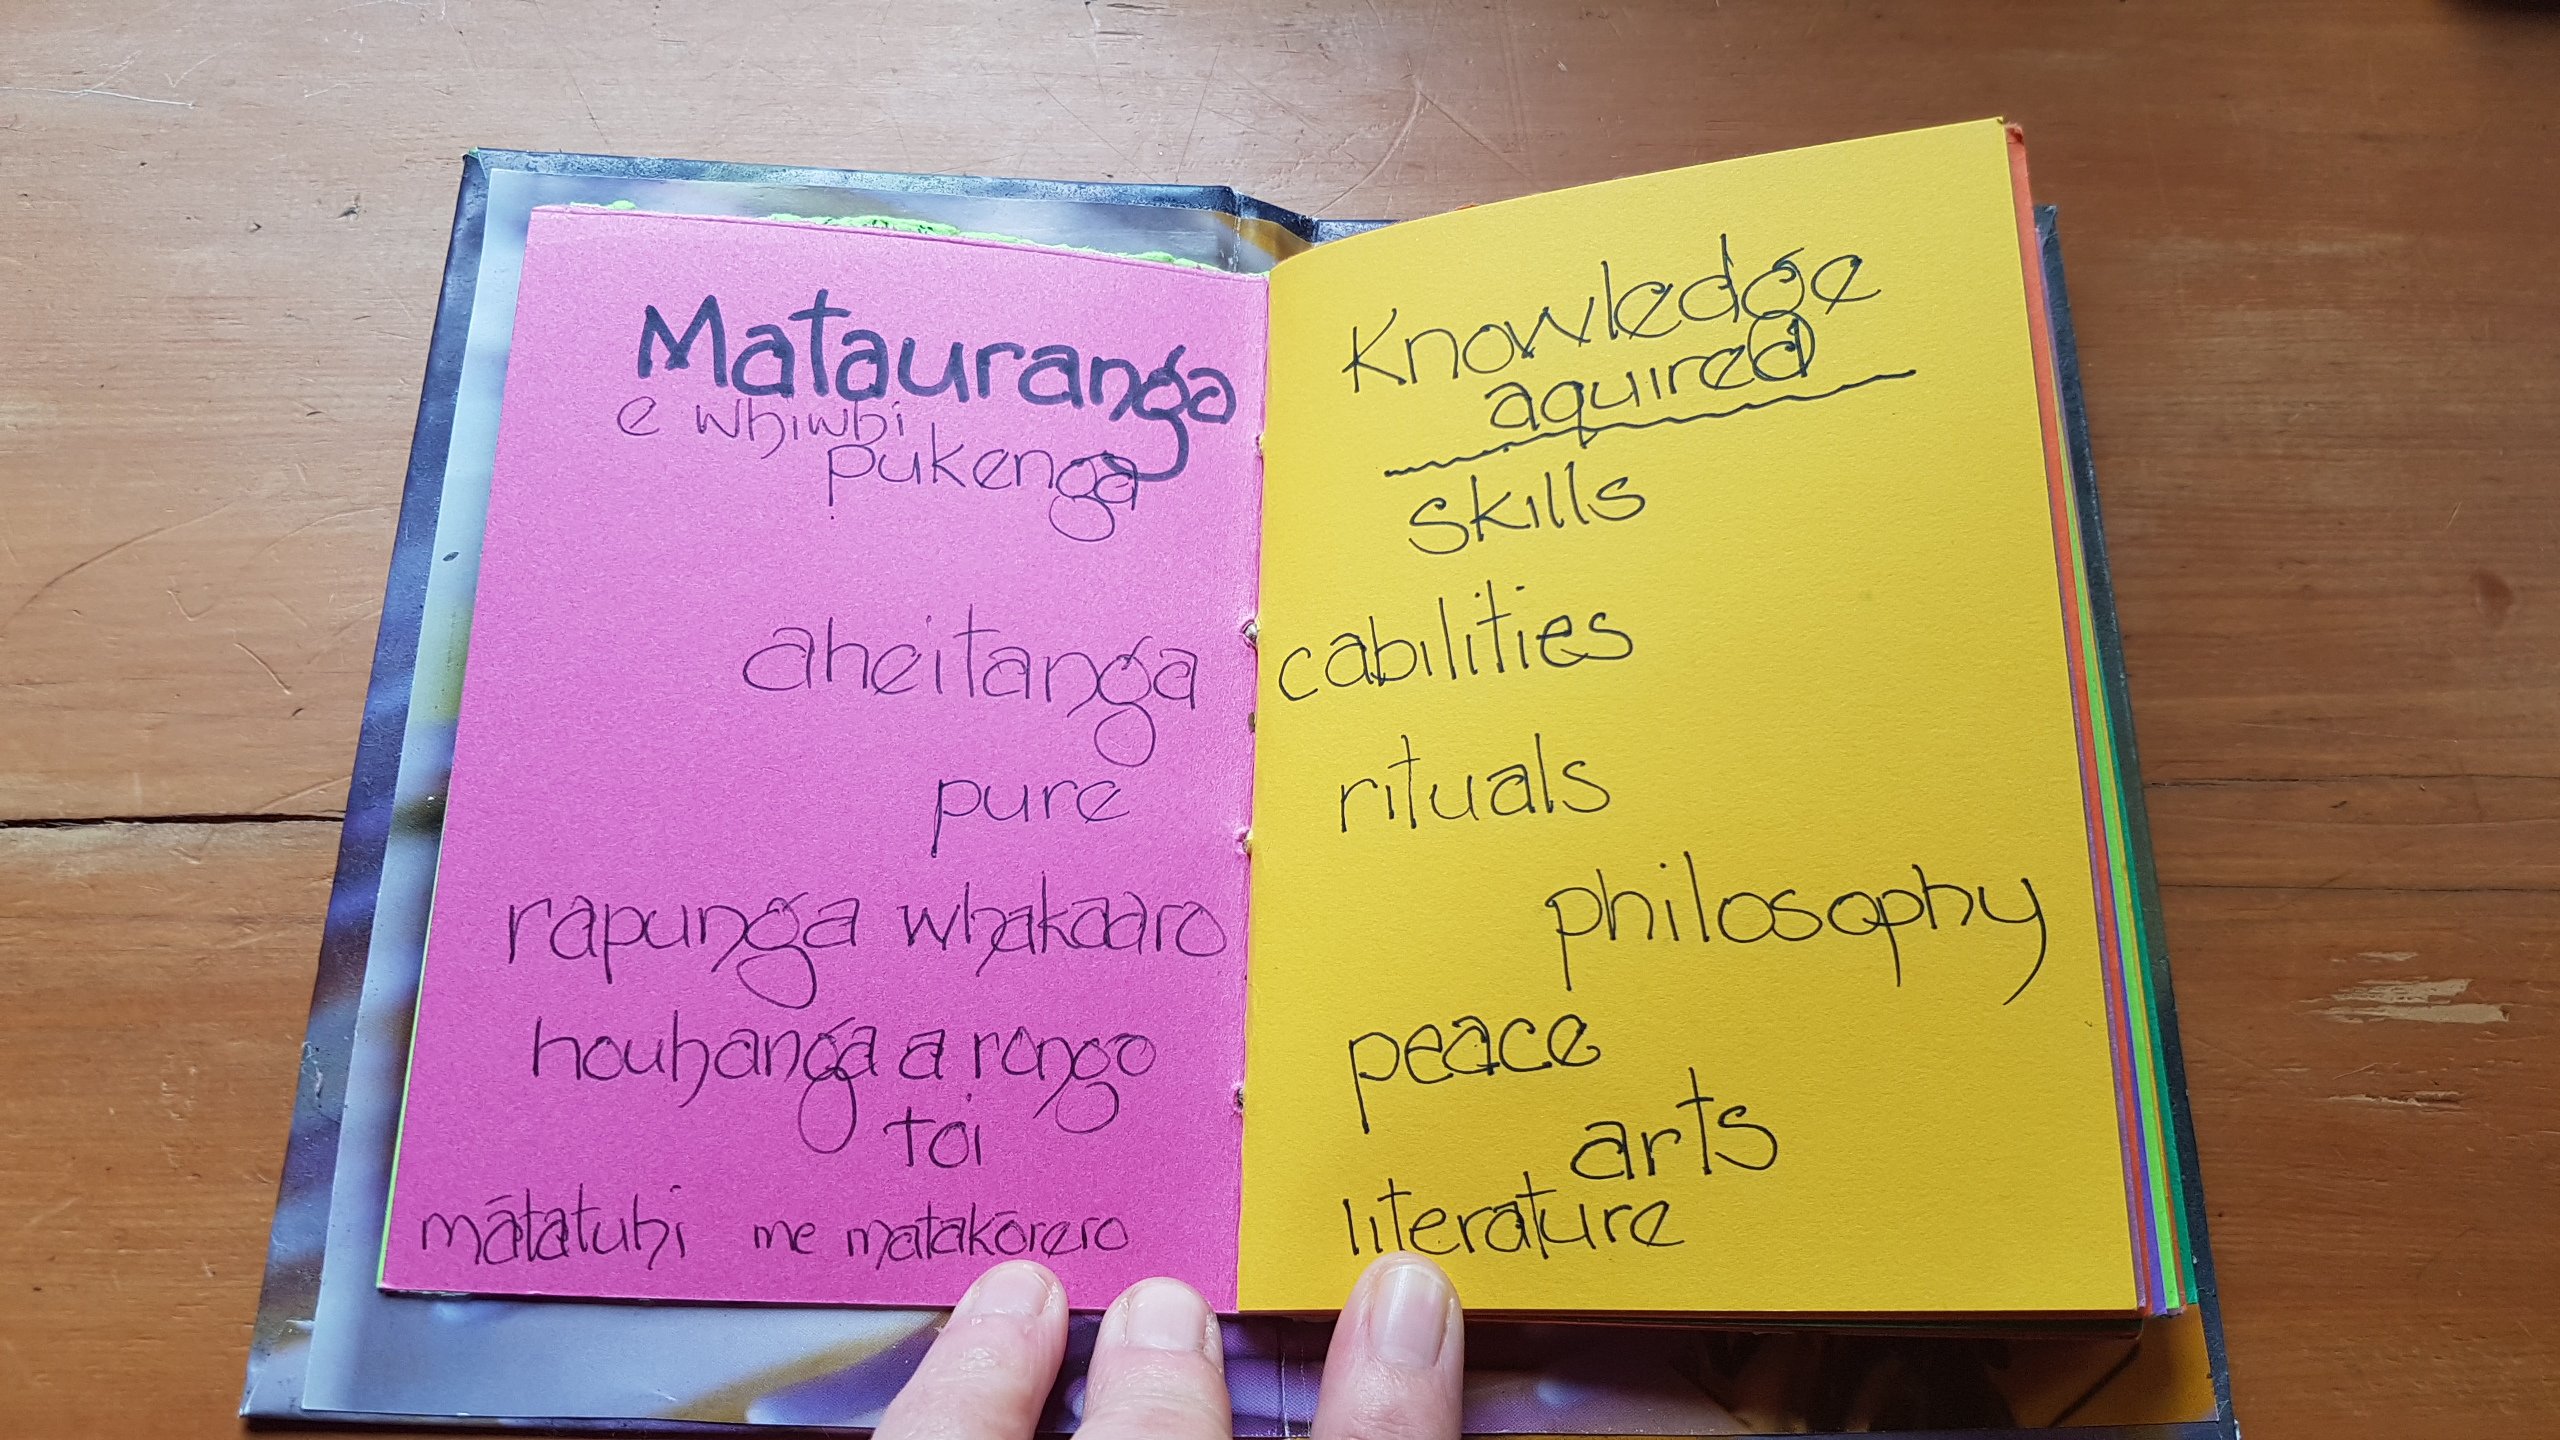 Matauranga
e whiwhi
pukenga
aheitanga
pure
rapunga whakaaro
houhanga a rongo
toi
mātatuhi me matakōrero
Knowledge
aquired
skills
cabilities
rituals
philosophy
peace
arts
literature